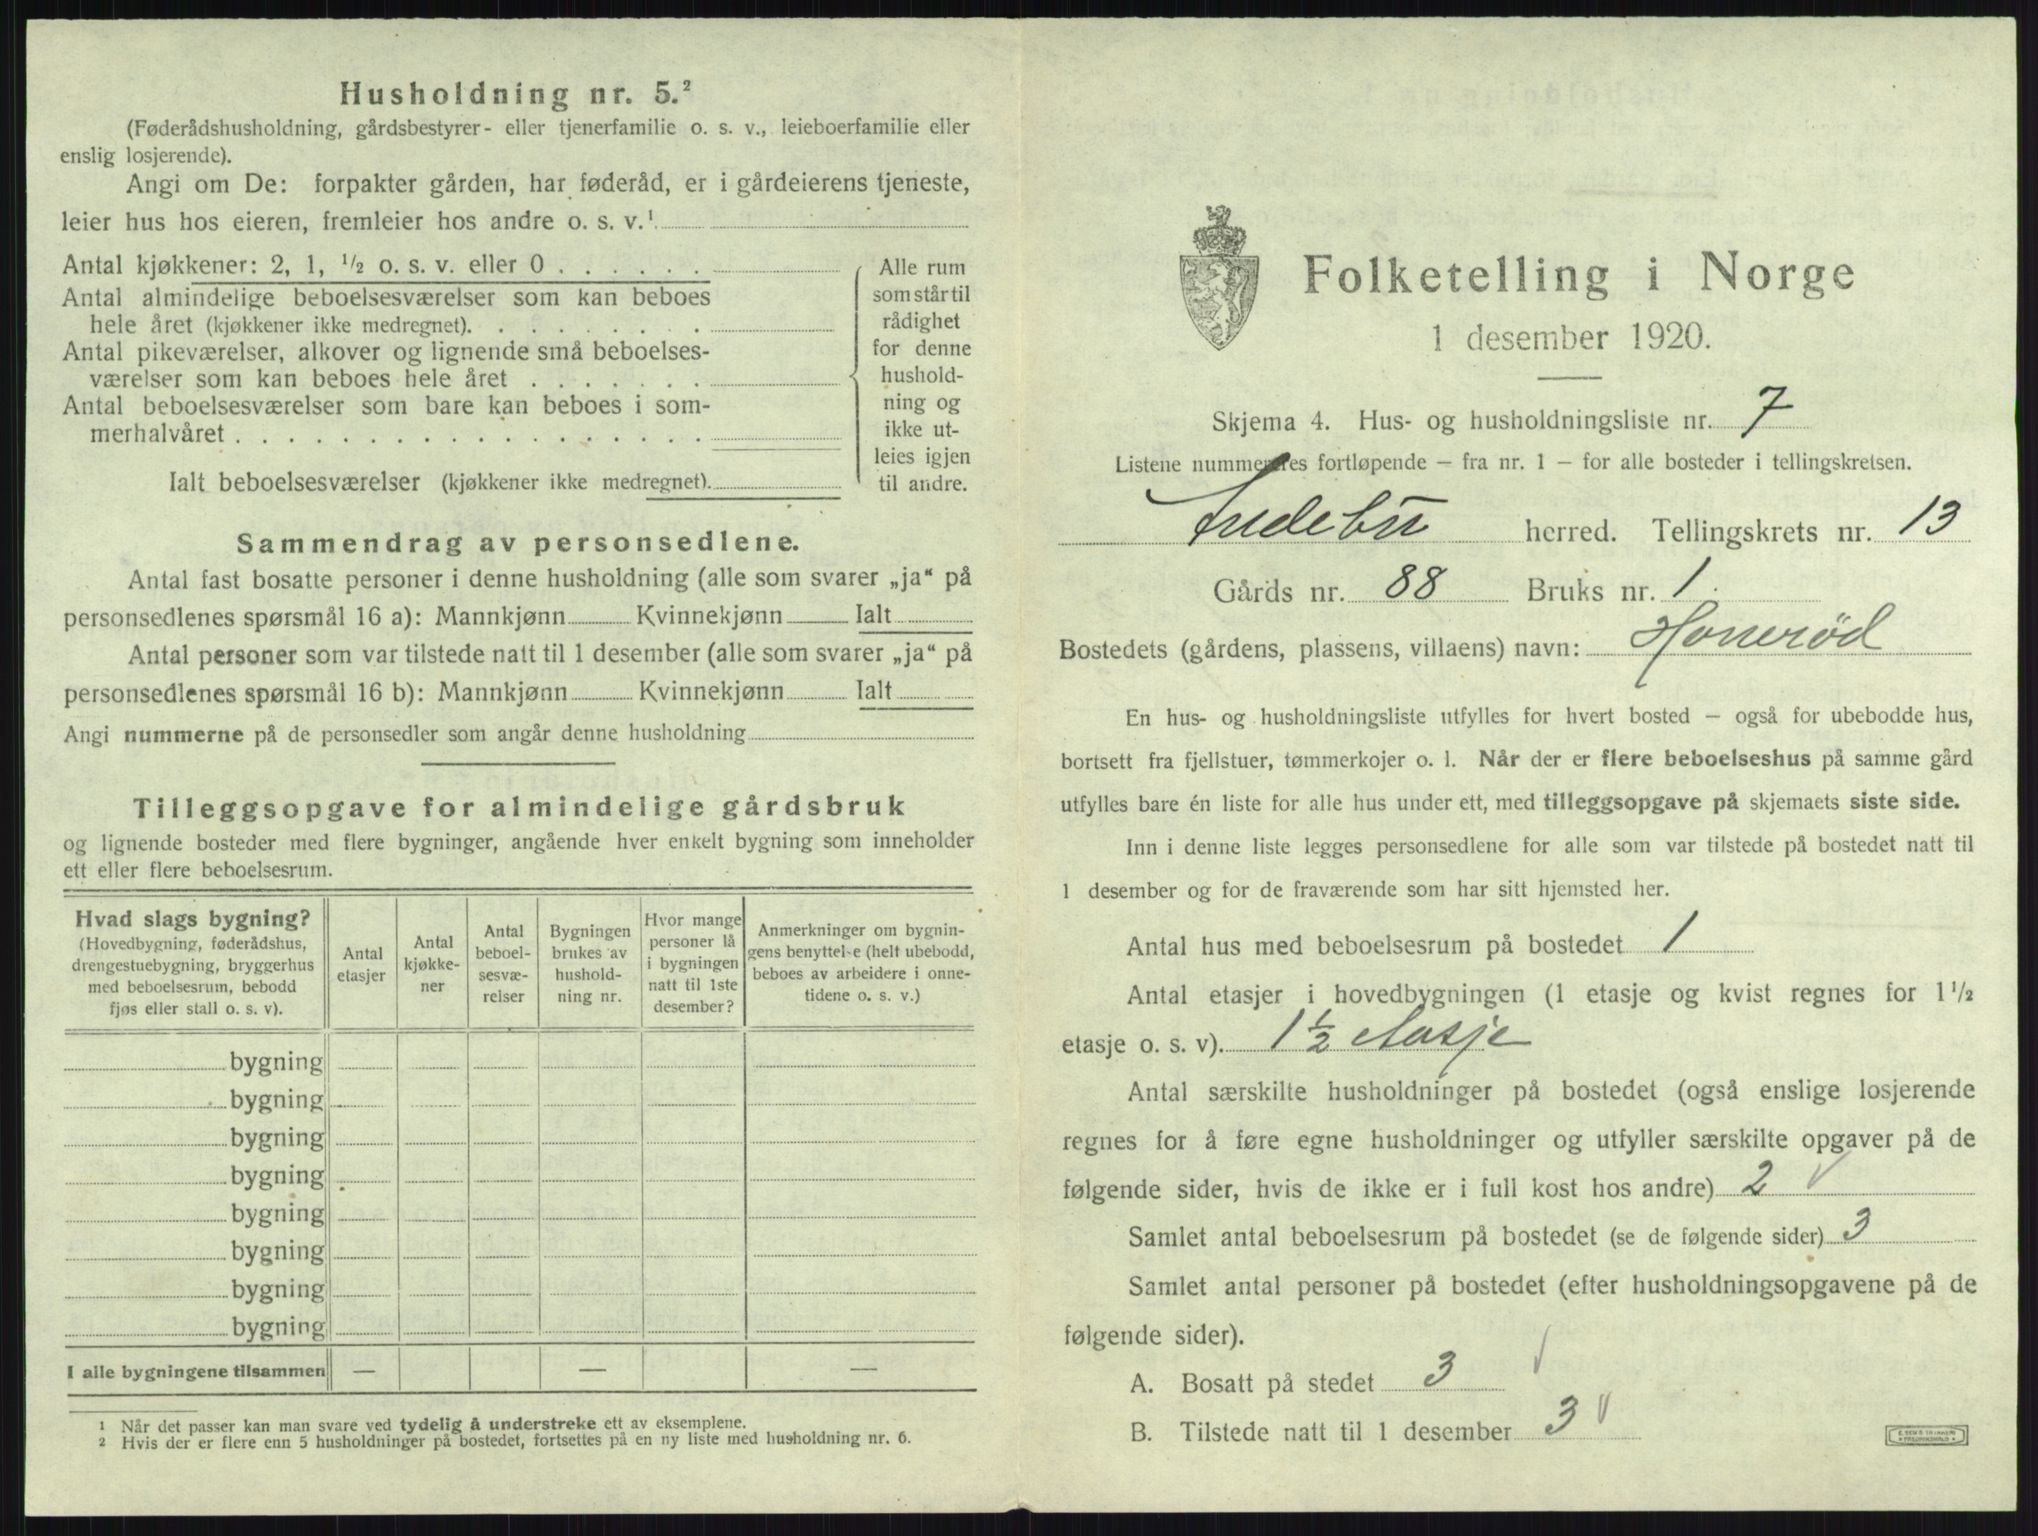 Husholdning nr. 5.²
(Føderådshusholdning, gårdsbestyrer- eller tjenerfamilie o. s. v., leieboerfamilie eller
enslig losjerende).
Angi om De: forpakter gården, har føderåd, er i gårdeierens tjeneste,
leier hus hos eieren, fremleier hos andre o. s. v.¹
Antal kjøkkener: 2, 1, ½ o. s. v. eller 0 . . . . . .
Antal almindelige beboelsesværelser som kan beboes
hele året (kjøkkener ikke medregnet). . . . . . . . .
Antal pikeværelser, alkover og lignende små beboelses-
værelser som kan beboes hele året . . . . . . .
Antal beboelsesværelser som bare kan beboes i som-
merhalvåret . . . . . . . . . . . . . . . . . .
Ialt beboelsesværelser (kjøkkener ikke medregnet).
Alle rum
som står til
rådighet
for denne
hushold-
ning og
ikke ut-
leies igjen
til andre.
Sammendrag av personsedlene.
Antal fast bosatte personer i denne husholdning (alle som svarer „ja“ på
personsedlenes spørsmål 16 a): Mannkjønn Kvinnekjønn Ialt
Antal personer som var tilstede natt til 1 desember (alle som svarer „ja“ på
personsedlenes spørsmål 16 b): Mannkjønn Kvinnekjønn Ialt
Angi nummerne på de personsedler som angår denne husholdning
Tilleggsopgave for almindelige gårdsbruk
og lignende bosteder med flere bygninger, angående hver enkelt bygning som inneholder
ett eller flere beboelsesrum.
Hvad slags bygning?
(Hovedbygning, føderådshus,
drengestuebygning, bryggerhus
med beboelsesrum, bebodd
fjøs eller stall o. s. v).
Antal
etasjer
Antal
kjøkke-
ner
Antal
beboel-
sesvæ-
relser
Bygningen
brukes av
hushold-
ning nr.
Hvor mange
personer lå
i bygningen
natt til 1ste
desember?
Anmerkninger om bygnin-
gens benyttelse (helt ubebodd,
beboes av arbeidere i onne-
tidene o. s. v.)
bygning
bygning
bygning
bygning
bygning
bygning
bygning
bygning
I alle bygningene tilsammen — — —
¹ Når det passer kan man svare ved tydelig å understreke ett av eksemplene.
² Hvis der er flere enn 5 husholdninger på bostedet, fortsettes på en ny liste med husholdning nr. 6.
Folketelling i Norge
1 desember 1920.
Skjema 4. Hus- og husholdningsliste nr. 7
Listene nummereres fortløpende – fra nr. 1 – for alle bosteder i tellingskretsen.
Andebu herred. Tellingskrets nr. 13
Gårds nr. 88 Bruks nr. 1.
Bostedets (gårdens, plassens, villaens) navn: Honerød
En hus- og husholdningsliste utfylles for hvert bosted – også for ubebodde hus,
bortsett fra fjellstuer, tømmerkojer o. l. Når der er flere beboelseshus på samme gård
utfylles bare én liste for alle hus under ett, med tilleggsopgave på skjemaets siste side.
Inn i denne liste legges personsedlene for alle som var tilstede på bostedet natt til
1 desember og for de fraværende som har sitt hjemsted her.
Antal hus med beboelsesrum på bostedet 1
Antal etasjer i hovedbygningen (1 etasje og kvist regnes for 1½
etasje o. s. v). 1½ etasje
Antal særskilte husholdninger på bostedet (også enslige losjerende
regnes for å føre egne husholdninger og utfyller særskilte opgaver på de
følgende sider, hvis de ikke er i full kost hos andre) 2 √
Samlet antal beboelsesrum på bostedet (se de følgende sider) 3
Samlet antal personer på bostedet (efter husholdningsopgavene på de
følgende sider).
A. Bosatt på stedet 3 √
B. Tilstede natt til 1 desember 3 √